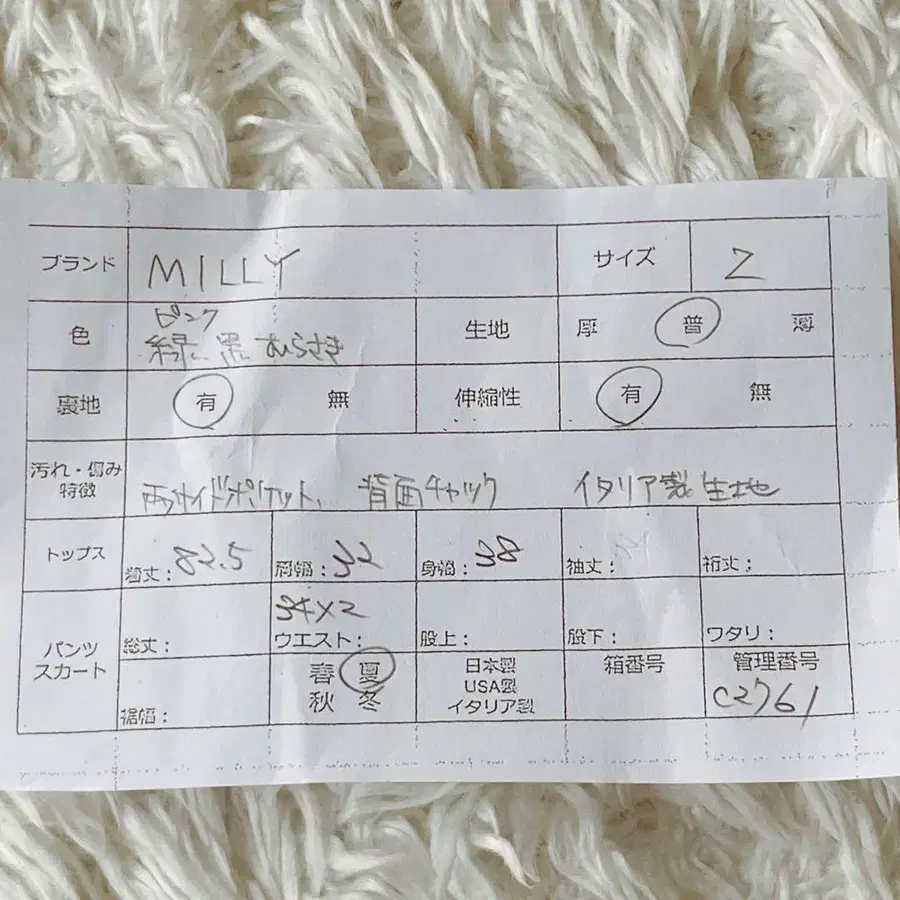 ブランド MILLY サイズ 2
色 ピンク
緑、黒 むらさき 生地 厚 普 薄
裏地 有 無 伸縮性 有 無
汚れ・傷み
特徴 両サイドポケット、 背面チャック イタリア製生地
トップス 着丈：82.5 肩幅：32 身幅：38 袖丈： 裄丈：
パンツ
スカート 総丈： 34×2
ウエスト： 股上： 股下： ワタリ：
裾幅： 春 夏
秋 冬 日本製
USA製
イタリア製 箱番号 管理番号
C2761